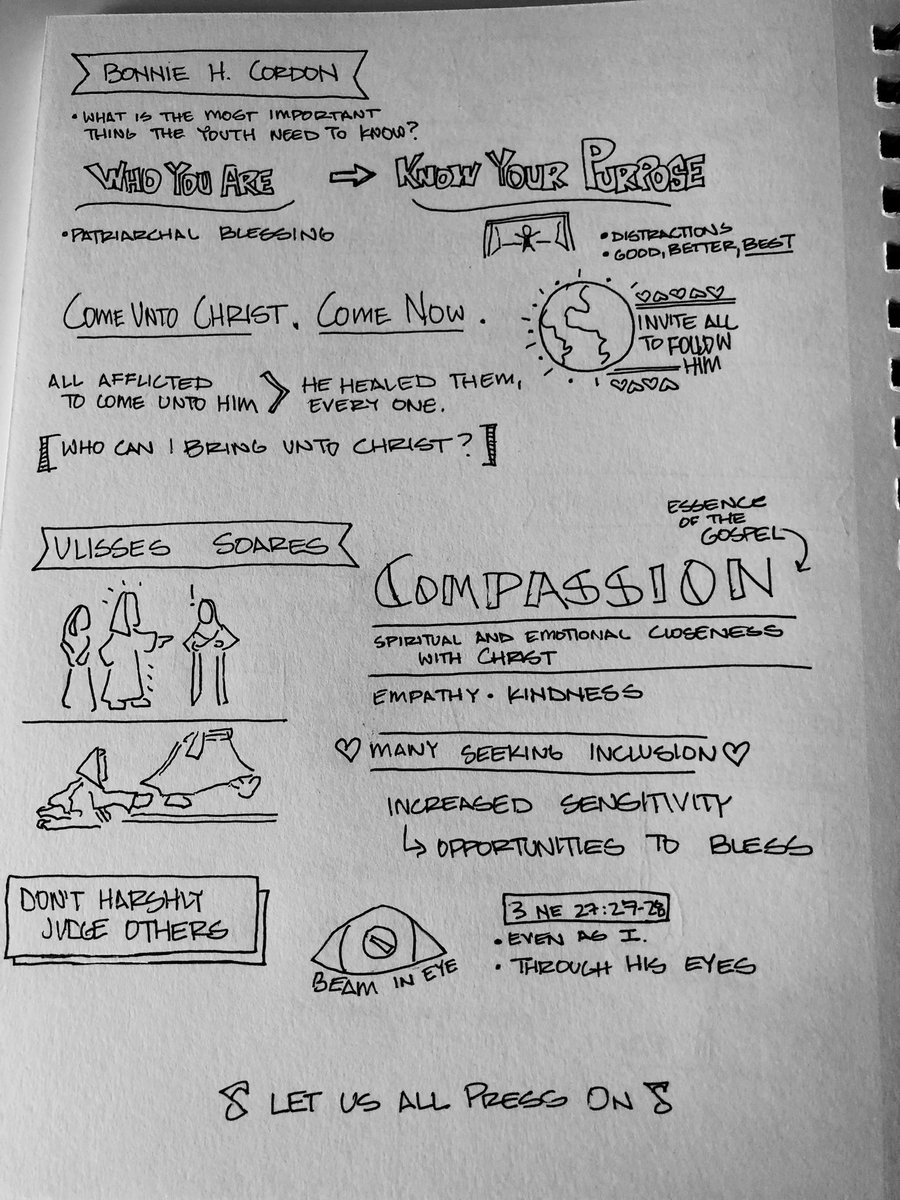 BONNIE H. CORDON
• WHAT IS THE MOST IMPORTANT
THING THE YOUTH NEED TO KNOW?
WHO YOU ARE → KNOW YOUR PURPOSE
• PATRIARCHAL BLESSING
• DISTRACTIONS
• GOOD, BETTER, BEST
COME UNTO CHRIST. COME NOW.
INVITE ALL
TO FOLLOW
HIM
ALL AFFLICTED
TO COME UNTO HIM
HE HEALED THEM,
EVERY ONE.
[WHO CAN I BRING UNTO CHRIST?]
ULISSES SOARES
!
ESSENCE
OF THE
GOSPEL
COMPASSION
SPIRITUAL AND EMOTIONAL CLOSENESS
WITH CHRIST
EMPATHY • KINDNESS
♡ MANY SEEKING INCLUSION ♡
INCREASED SENSITIVITY
↳ OPPORTUNITIES TO BLESS
DON'T HARSHLY
JUDGE OTHERS
BEAM IN EYE
3 NE 27:27-28
• EVEN AS I.
• THROUGH HIS EYES
LET US ALL PRESS ON